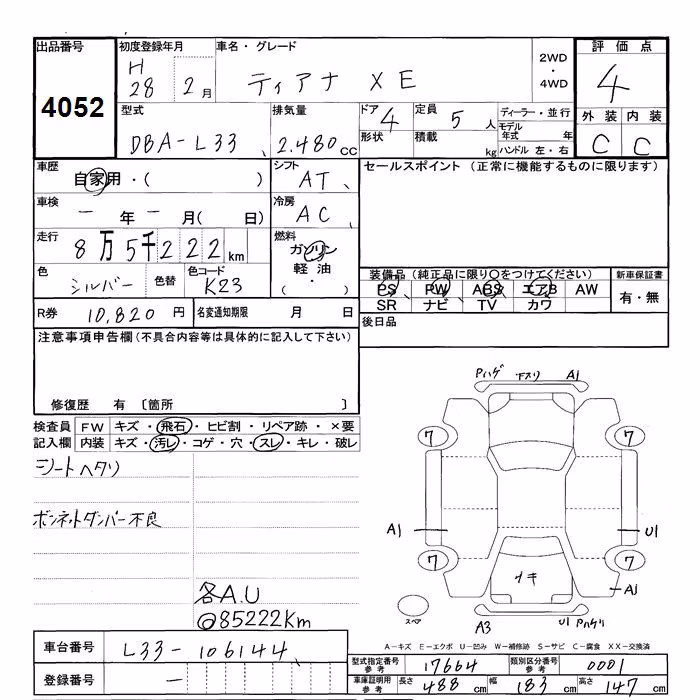 出品番号
4052
初度登録年月
H
28 2 月
車名・グレード
ティアナ XE
2WD
・
4WD
評価点
4
型式
DBA-L33
排気量
2.480 cc
ドア 4
形状
定員 5 人
積載 kg
ディーラー・並行
モデル
年式 年
ハンドル 左・右
外装 内装
C C
車歴
自家用・( )
シフト
AT
セールスポイント (正常に機能するものに限ります)
車検
ー 年 ー 月( 日)
冷房
AC
走行
8万5千222km
燃料
ガソリン
軽油
( ・ )
色
シルバー
色替
色コード
K23
装備品 (純正品に限り○をつけてください)
PS PW ABS エアB AW
SR ナビ TV カワ
新車保証書
有・無
R券 10,820 円
名変通知期限 月 日
後日品
注意事項申告欄(不具合内容等は具体的に記入して下さい)
修復歴 有 〔箇所 〕
検査員 FW キズ・飛石・ヒビ割・リペア跡・×要
記入欄 内装 キズ・汚レ・コゲ・穴・スレ・キレ・破レ
シートヘタリ
ボンネットダンパー不良
各A.U
@85222Km
Pハゲ 下スリ A1
7 7
A1 U1
7 7
A1
キ
スペア
A3 U1 Pハゲ
A-キズ E-エクボ U-凹み W-補修跡 S-サビ C-腐食 XX-交換済
車台番号 L33-106144
登録番号 ー
型式指定番号
参考
17664
類別区分番号
参考
0001
車庫証明用
参考
長さ 488 cm 幅 183 cm 高さ 147 cm